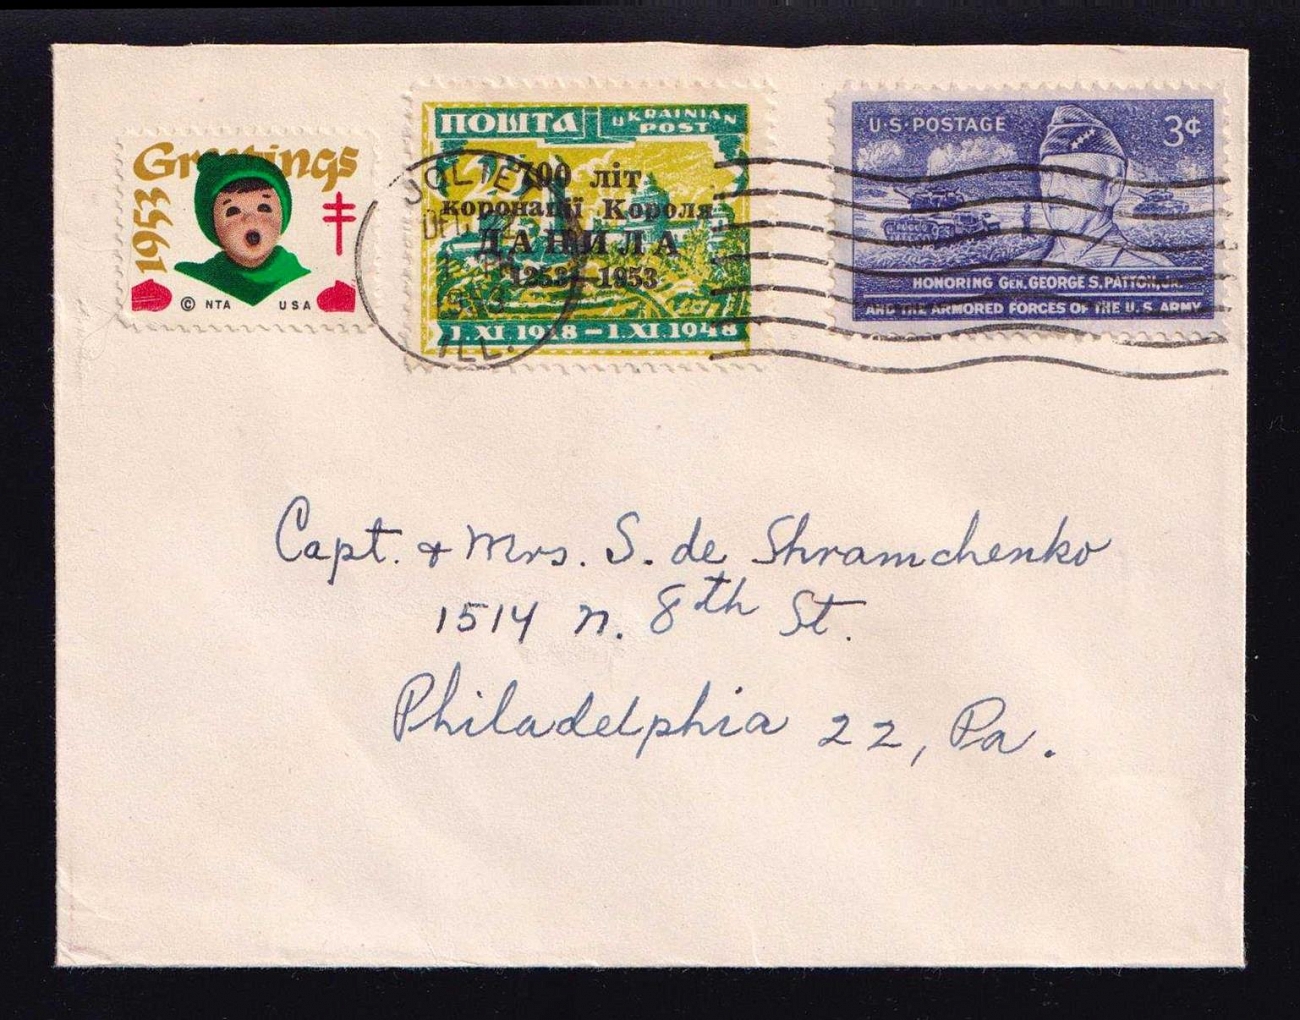 Greetings
1953
© NTA USA
ПОШТА
UKRAINIAN
POST
700 літ
коронації Короля
ДАНИЛА
1253–1953
1.XI.1918–1.XI.1948
JOLIET
DEC
1953
ILL.
U·S·POSTAGE 3¢
HONORING GEN. GEORGE S. PATTON, JR.
AND THE ARMORED FORCES OF THE U.S. ARMY
Capt. & Mrs. S. de Shramchenko
1514 N. 8th St.
Philadelphia 22, Pa.